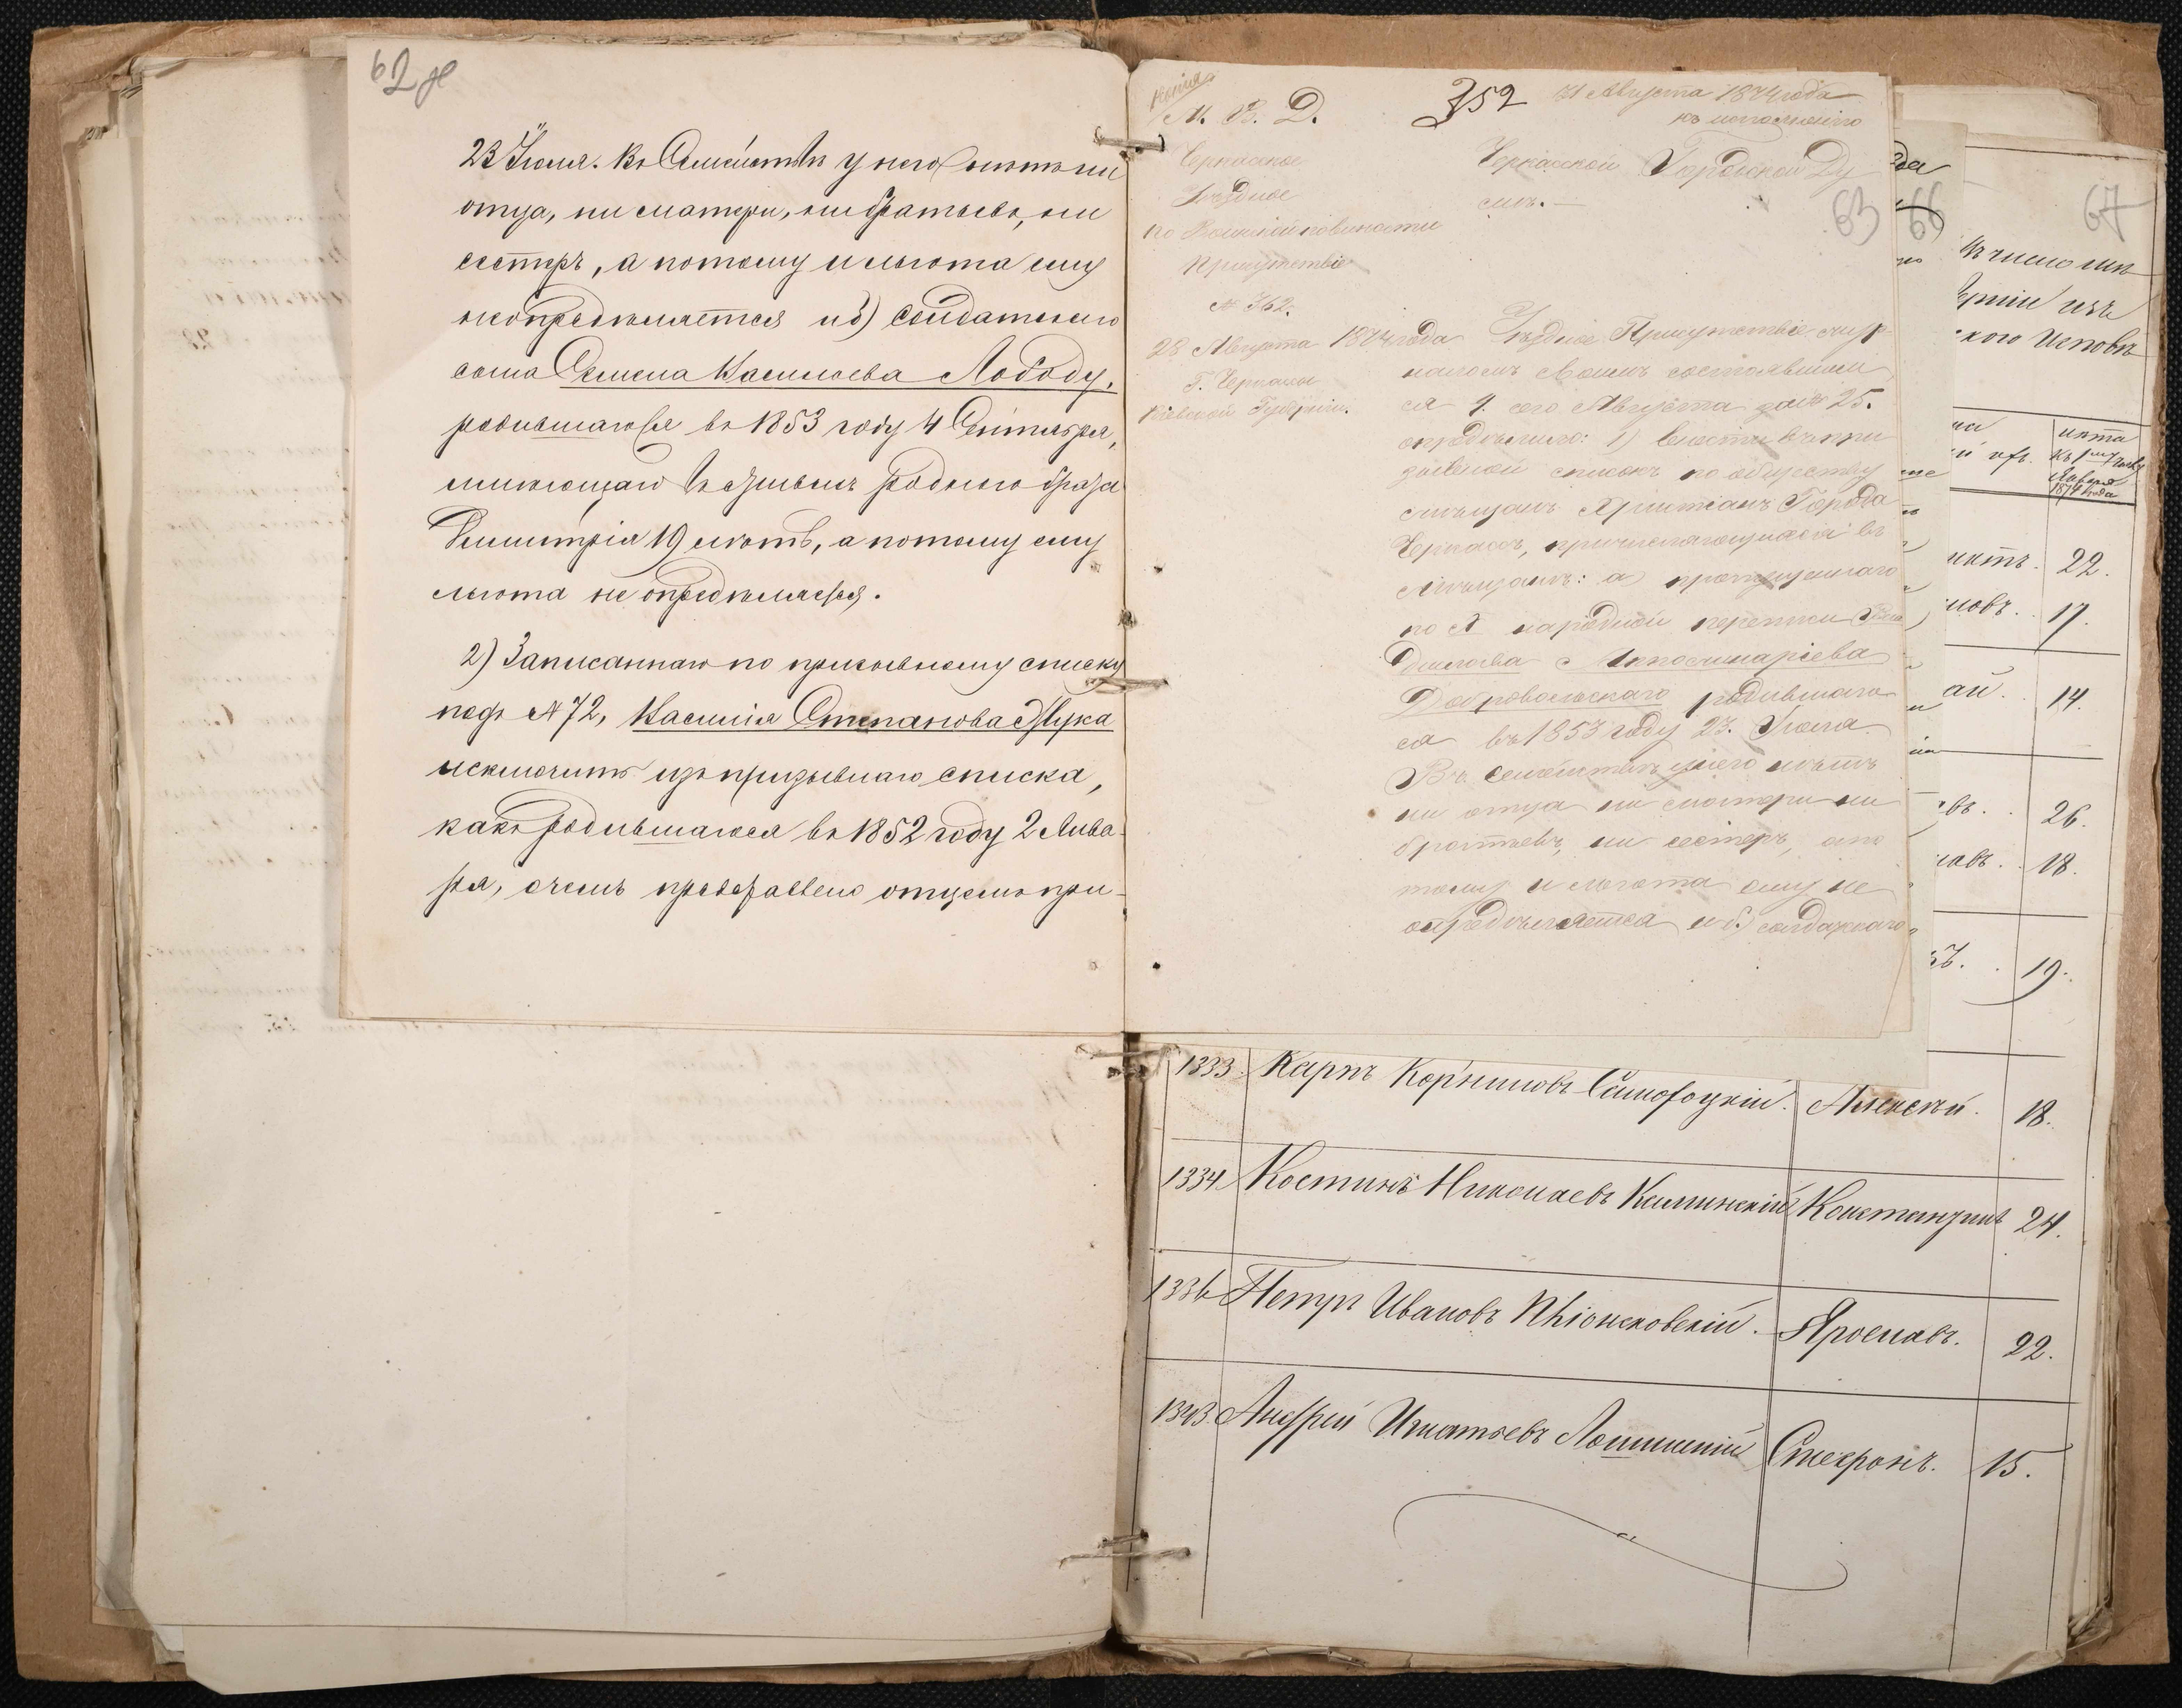 62 н
23 Іюля. Въ Семействѣ у него нѣтъ ни
отца, ни матери, ни братьевъ, ни
сестръ, а потому и льгота ему
неопредѣляется и б) Солдатскаго
сына Семена Касьянова Лободу,
родившагося въ 1853 году 4 Сентября,
имѣющаго роднаго брата
Димитрія 19 лѣтъ, а потому ему
льгота не опредѣляется.
2) Записаннаго по призывному списку
подъ № 72, Касьяна Степанова Жука
исключить изъ призывнаго списка,
какъ родившагося въ 1852 году 2 Янва-
ря, о чемъ представлено отцемъ при-
Копія
М. В. Д.
352
31 Августа 1874 года
къ исполненію
Черкасское
Уѣздное
по Воинской повинности
Присутствіе
№ 362.
28 Августа 1874 года
Г. Черкасы
Кіевской Губерніи.
Черкасской Городской Ду
мѣ. —
63
Уѣздное Присутствіе жур
наломъ своимъ состоявшим
ся 9. сего Августа за № 25.
опредѣлило: 1) внести въ при
зывной списокъ по обществу
мѣщанъ Христіанъ Города
Черкасъ, причисляющихся въ
мѣщане: а) пропущеннаго
по X народной переписи
Аполинаріева
Добровольскаго родившаго
ся въ 1853 году 23. Іюля.
Въ семействѣ у него нѣтъ
ни отца ни матери ни
братьевъ, ни сестеръ, а по
тому и льгота ему не
опредѣляется и б) солдатскаго
да
66
67
въ число мѣ
ерніи изъ
ского Исповѣ
лѣта
Января
1874 года
22.
17.
14.
26.
18.
19.
1333. Карпъ Корниловъ Алексѣй. 18.
1334. Костинъ Николаевъ Калинскій Константинъ 24.
1336 Петръ Ивановъ Ярославъ. 22.
1343. Андрей Игнатьевъ Стефанъ. 15.